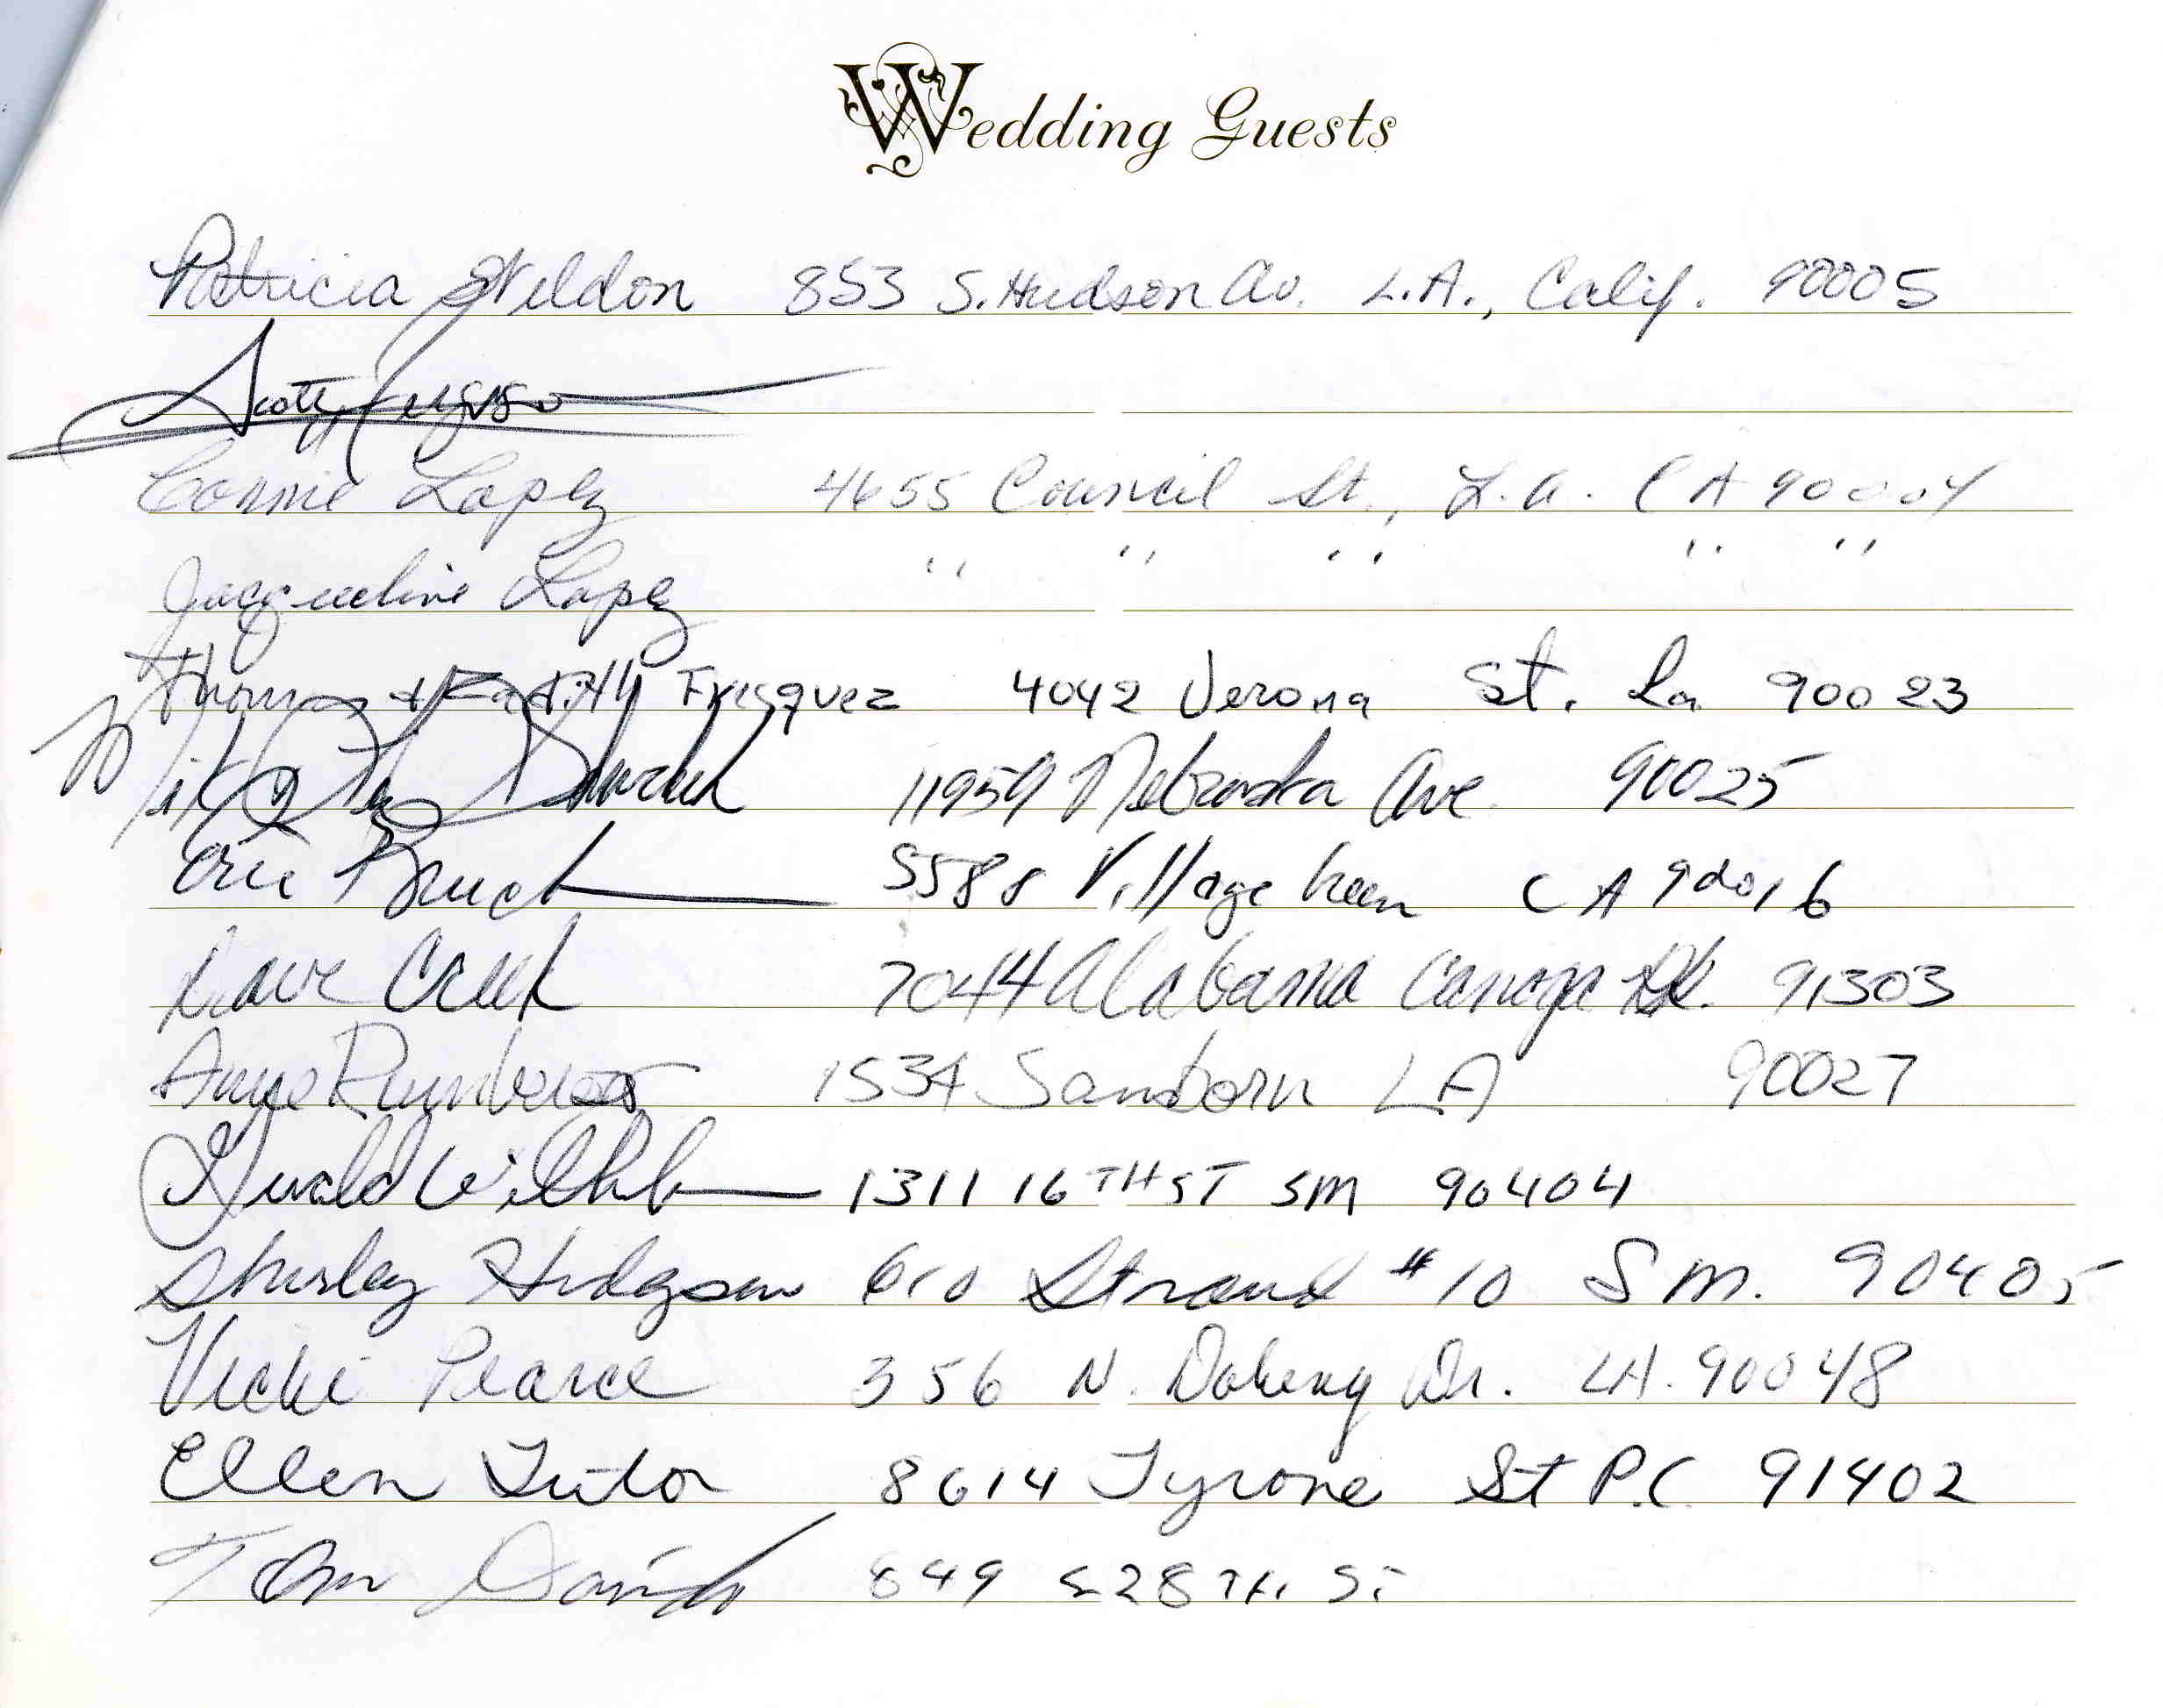 Wedding Guests
Patricia Weldon 853 S. Hudson Av. L.A., Calif. 90005
Scott
Connie Lopez 4655 Council St., L.A. CA 90004
Jacqueline Lopez " " " " "
Thomas + Kathy Frisquez 4042 Verona St. La 90023
11959 Nebraska Ave 90025
Eric 5588 Village Green CA 90016
Dave 7044 Alabama Canoga Pk. 91303
1534 Sanborn LA 90027
1311 16TH ST SM 90404
Shirley Hodgson 610 Strand #10 S M. 90405
Vicki Pearce 356 N. Doheny Dr. LA. 90048
Ellen Tutor 8614 Tyrone St P.C. 91402
Tom 849 28TH ST